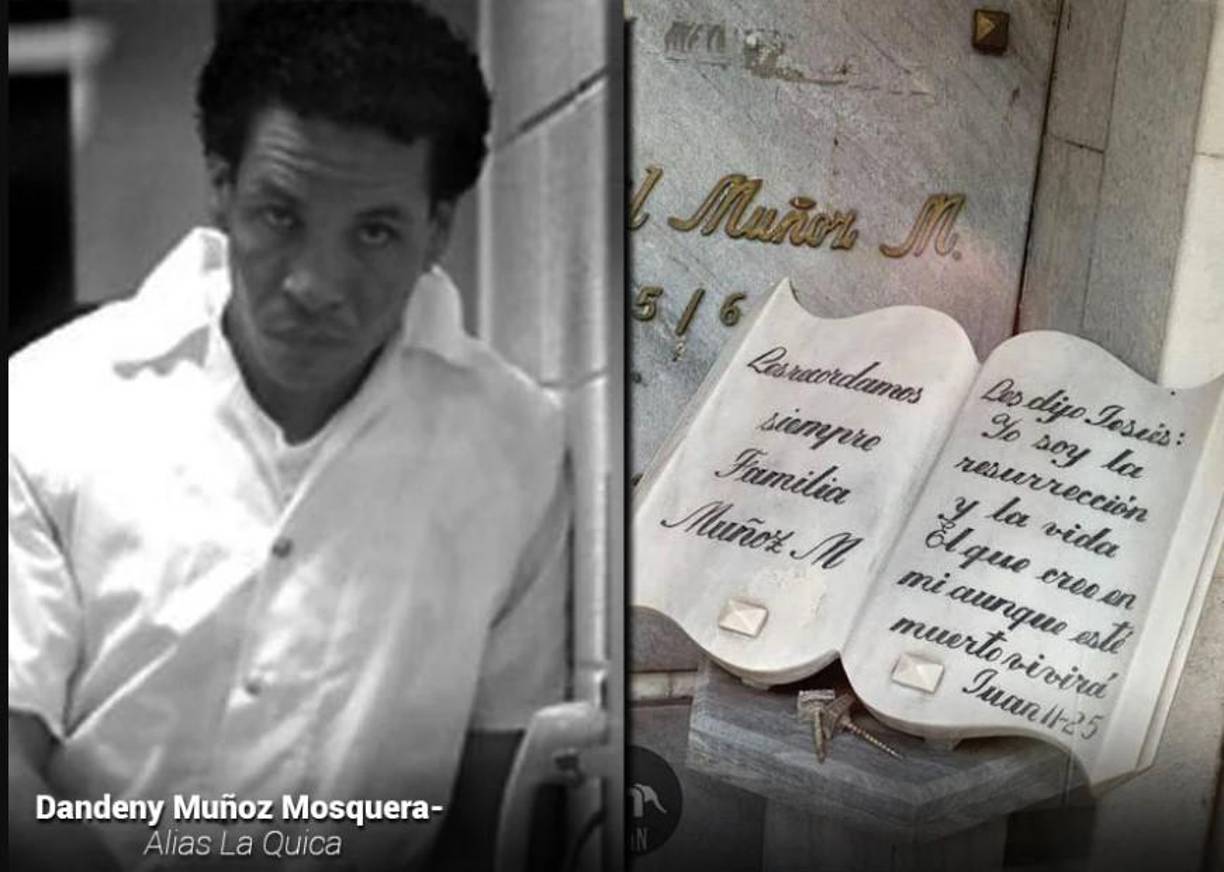 l Muñoz M.
5/6
Les recordamos
siempre
Familia
Muñoz M
Les dijo Jesús:
Yo soy la
resurrección
y la vida
El que cree en
mi aunque esté
muerto vivirá
Juan 11-25
Dandeny Muñoz Mosquera-
Alias La Quica